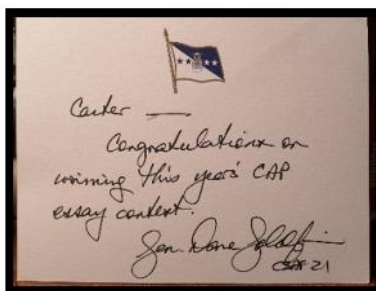 Carter —
Congratulations on
winning this year's CAP
essay contest.
Gen. Dave Goldfein
CSAF 21